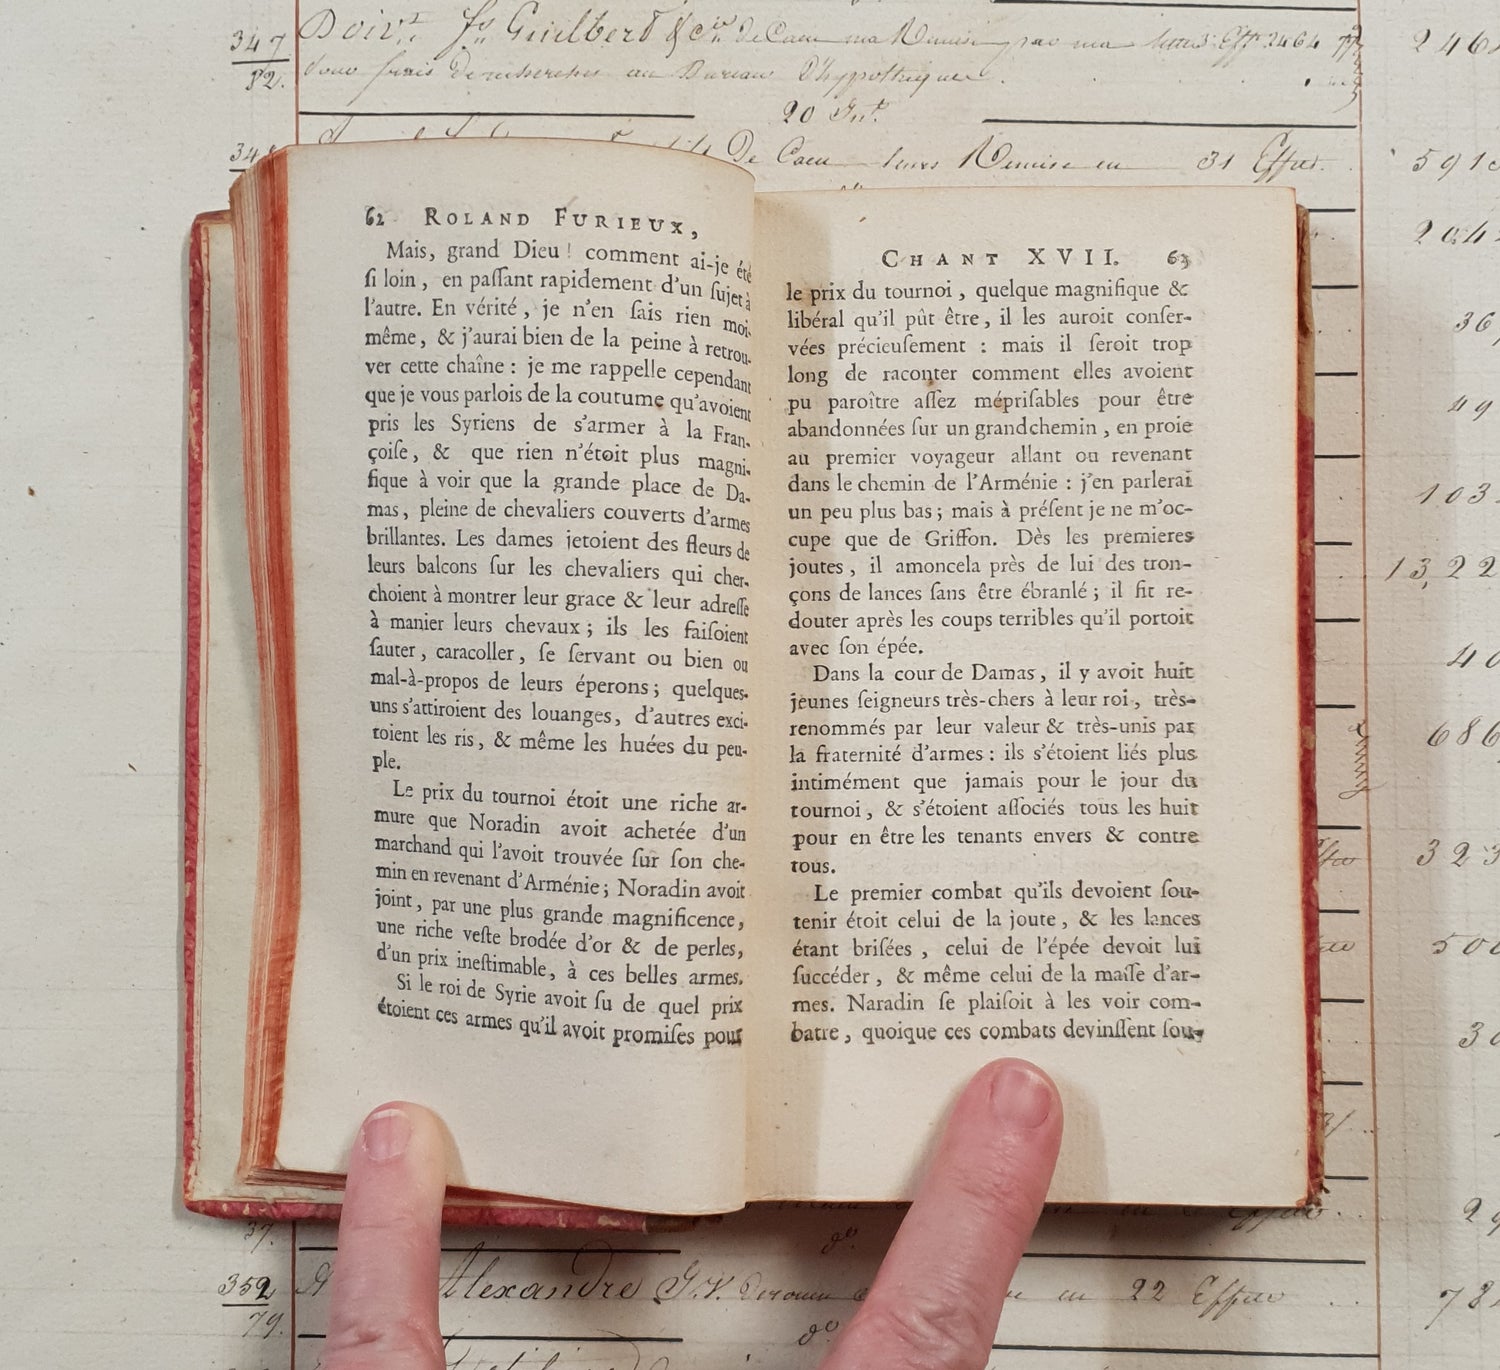 347
Doiv.t
Guilbert
52.
20
De Caen leurs Remise en 31 Effets
62 ROLAND FURIEUX,
Mais, grand Dieu ! comment ai-je été
ſi loin, en paſſant rapidement d'un ſujet à
l'autre. En vérité, je n'en ſais rien moi-
même, & j'aurai bien de la peine à retrou-
ver cette chaîne : je me rappelle cependant
que je vous parlois de la coutume qu'avoient
pris les Syriens de s'armer à la Fran-
çoiſe, & que rien n'étoit plus magni-
fique à voir que la grande place de Da-
mas, pleine de chevaliers couverts d'armes
brillantes. Les dames jetoient des fleurs de
leurs balcons ſur les chevaliers qui cher-
choient à montrer leur grace & leur adreſſe
à manier leurs chevaux ; ils les faiſoient
ſauter, caracoller, ſe ſervant ou bien ou
mal-à-propos de leurs éperons ; quelques-
uns s'attiroient des louanges, d'autres exci-
toient les ris, & même les huées du peu-
ple.
Le prix du tournoi étoit une riche ar-
mure que Noradin avoit achetée d'un
marchand qui l'avoit trouvée ſur ſon che-
min en revenant d'Arménie ; Noradin avoit
joint, par une plus grande magnificence,
une riche veſte brodée d'or & de perles,
d'un prix ineſtimable, à ces belles armes.
Si le roi de Syrie avoit ſu de quel prix
étoient ces armes qu'il avoit promiſes pour
CHANT XVII. 63
le prix du tournoi, quelque magnifique &
libéral qu'il pût être, il les auroit conſer-
vées précieuſement : mais il ſeroit trop
long de raconter comment elles avoient
pu paroître aſſez mépriſables pour être
abandonnées ſur un grandchemin, en proie
au premier voyageur allant ou revenant
dans le chemin de l'Arménie : j'en parlerai
un peu plus bas ; mais à préſent je ne m'oc-
cupe que de Griffon. Dès les premieres
joutes, il amoncela près de lui des tron-
çons de lances ſans être ébranlé ; il fit re-
douter après les coups terribles qu'il portoit
avec ſon épée.
Dans la cour de Damas, il y avoit huit
jeunes ſeigneurs très-chers à leur roi, très-
renommés par leur valeur & très-unis par
la fraternité d'armes : ils s'étoient liés plus
intimément que jamais pour le jour du
tournoi, & s'étoient aſſociés tous les huit
pour en être les tenants envers & contre
tous.
Le premier combat qu'ils devoient ſou-
tenir étoit celui de la joute, & les lances
étant briſées, celui de l'épée devoit lui
ſuccéder, & même celui de la maſſe d'ar-
mes. Naradin ſe plaiſoit à les voir com-
battre, quoique ces combats devinſſent ſou-
37.
352
Alexandre
en 22 Effets
79.